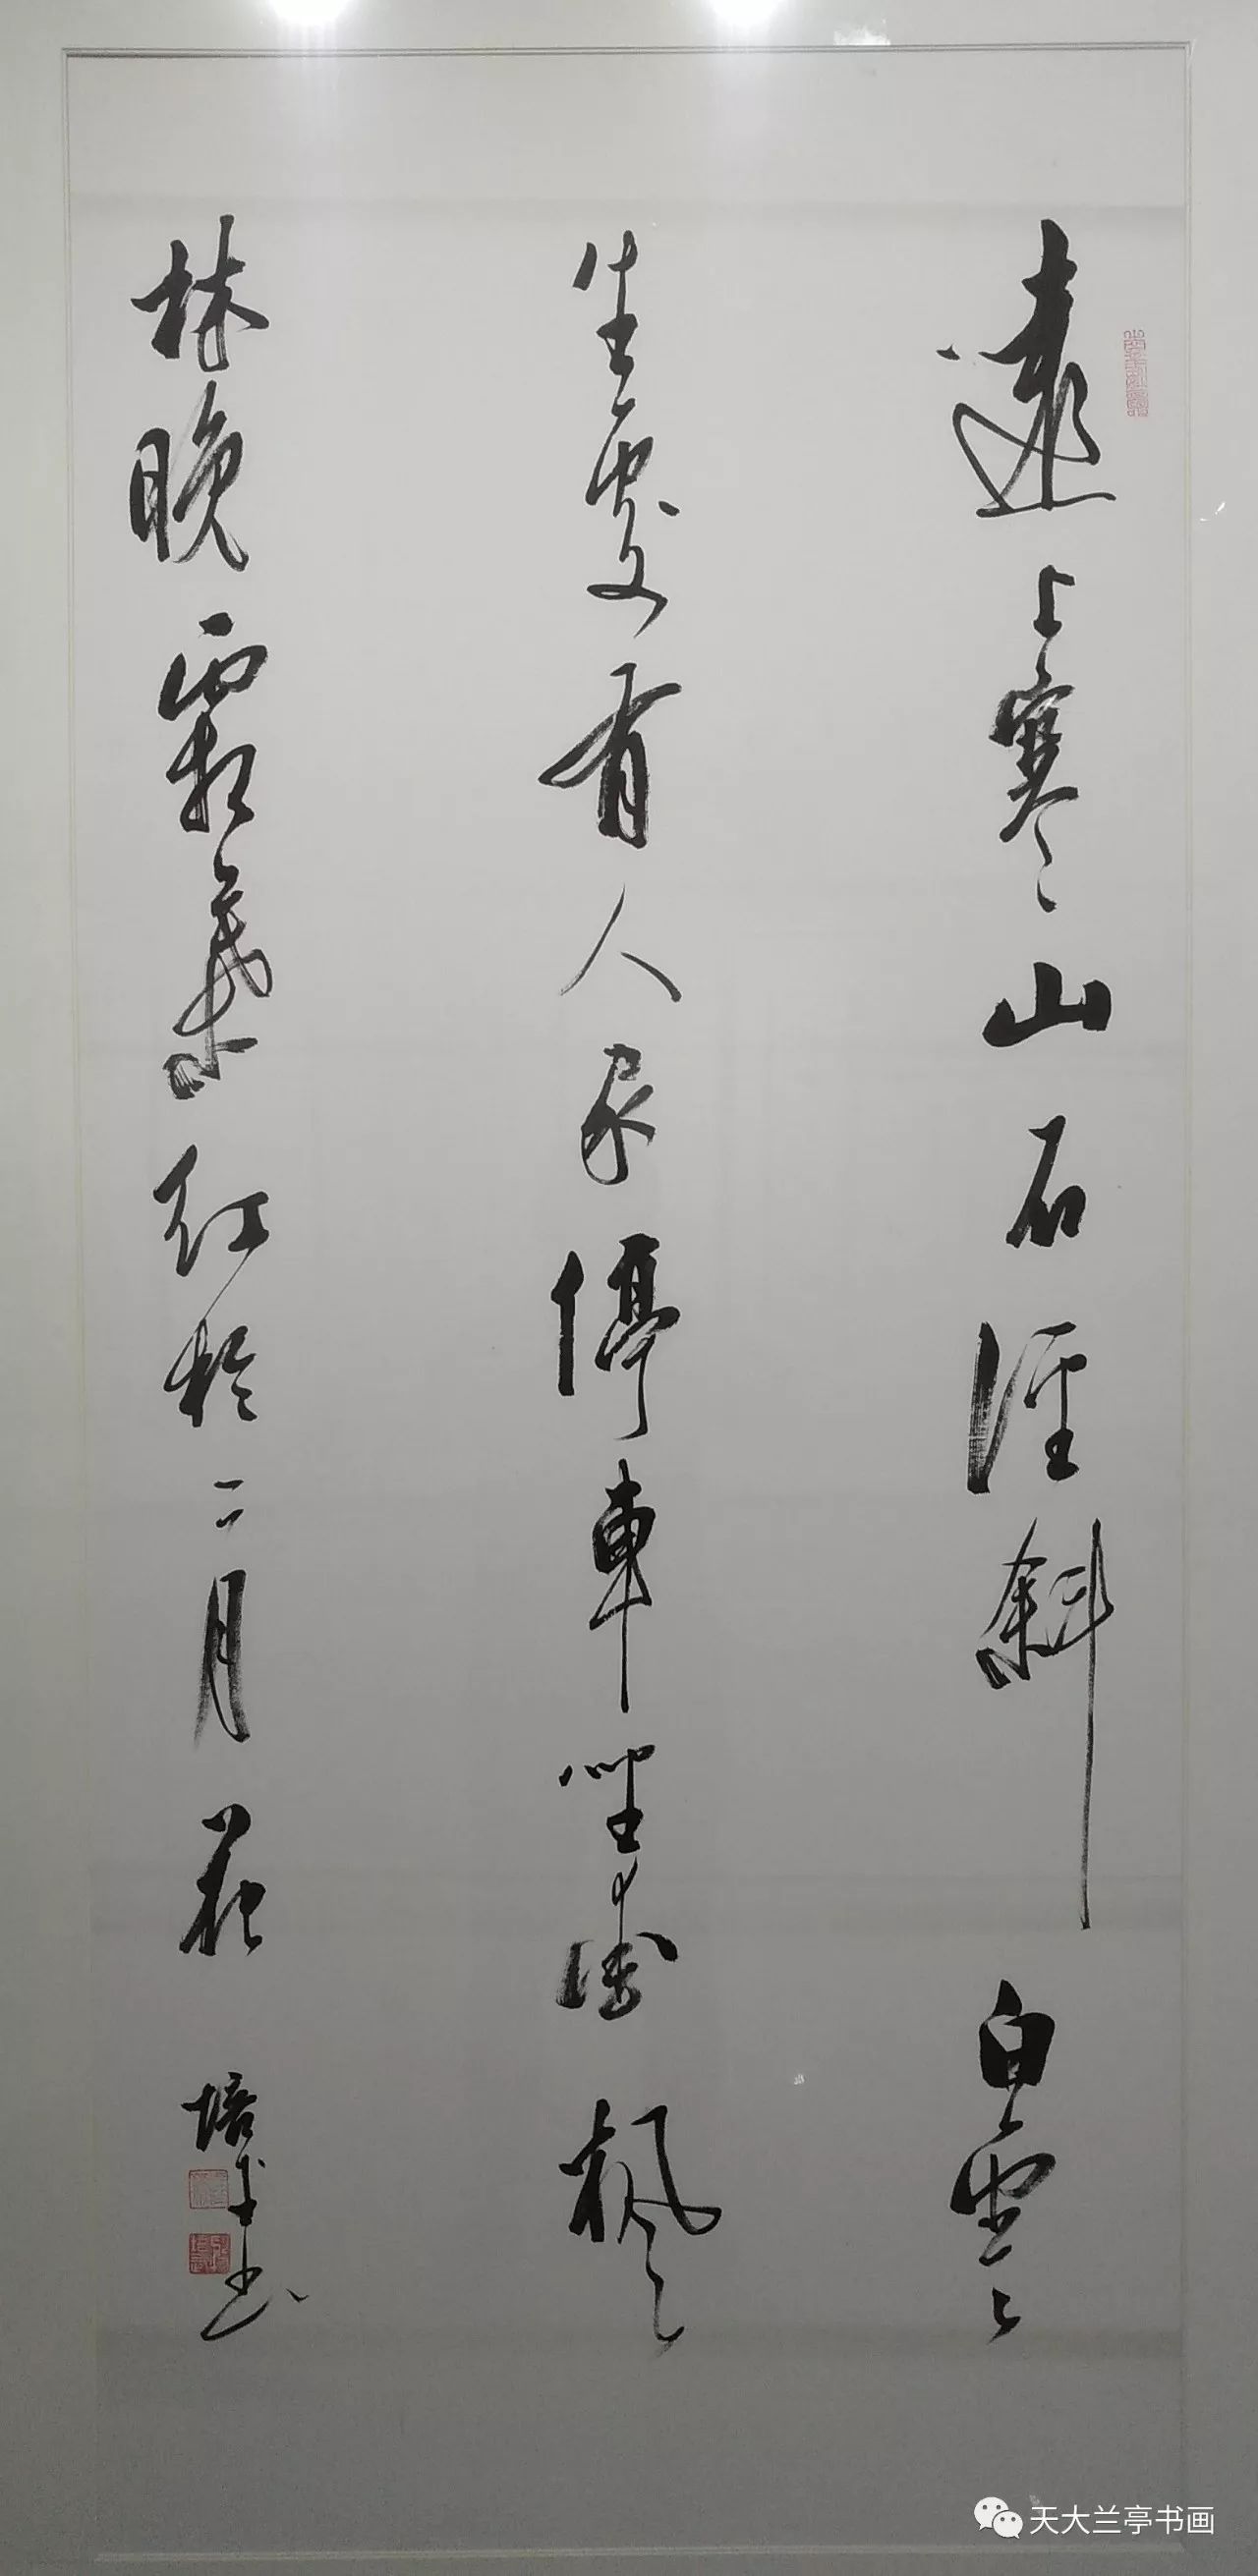 遠上寒山石徑斜白雲
生處有人家停車坐愛楓
林晚霜葉紅於二月花
培才书
天大兰亭书画